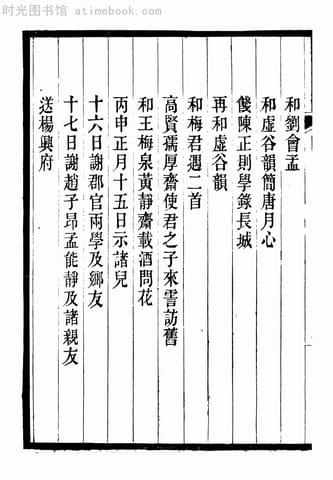 时光图书馆 atimebook.com
和劉會孟
和虛谷韻簡唐月心
餞陳正則學錄長城
再和虛谷韻
和梅君遇二首
高賢孺厚齋使君之子來霅訪舊
和王梅泉黃靜齋載酒問花
丙申正月十五日示諸兒
十六日謝郡官兩學及鄉友
十七日謝趙子昂孟能靜及諸親友
送楊興府